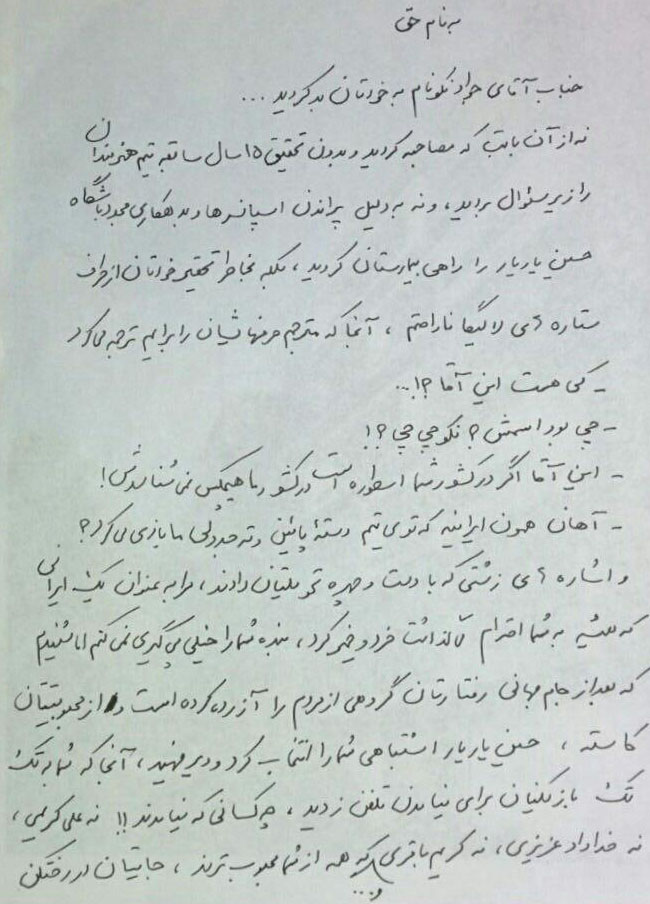 به نام حق
جناب آقای جواد نکونام به خودتان بد کردید ...
نه از آن بابت که مصاحبه کردید و بدون تحقیق ۱۵ سال سابقه تیم هنرمندان
را زیر سئوال بردید، و نه به دلیل پراندن اسپانسرها و بدهکاری مجدد باشگاه
حسین یاریار را راهی بیمارستان کردید، بلکه بخاطر تحقیر خودتان از طرف
ستاره های لالیگا ناراحتم، آنجا که مترجم حرفهاشیان را برایم ترجمه می کرد
- کی هست این آقا؟!...
- چی بود اسمش؟ نکو چی چی؟!
- این آقا اگر در کشور شما اسطوره است در کشور ما هیچکس نمی شناسدش!
- آهان همون ایرانیه که توی تیم دستهٔ پائین و ته جدولی ما بازی می کرد؟
و اشاره های زشتی که با دست و چهره تحویلتیان دادند، مرا به عنوان یک ایرانی
که همیشه به شما احترام گذاشت خرد و خمیر کرد، بنده شما را خیلی پیگیری نمی کنم اما شنیدم
که بعد از جام جهانی رفتارتان گروهی از مردم را آزرده کرده است و از محبوبیتتان
کاسته، حسین یاریار اشتباهی شما را انتخاب کرد و دیر فهمید، آنجا که شما به تک
تک بازیکنیان برای نیامدن تلفن زدید، چه کسانی که نیامدند!! نه علی کریمی،
نه خداداد عزیزی، نه کریم باقری و... که همه از شما محبوب ترند، جایتیان در رختکن